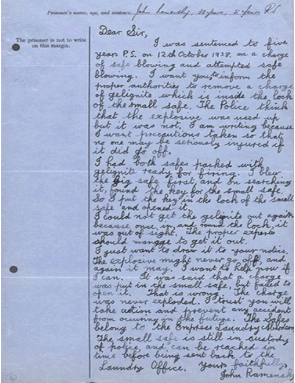 Prisoner's name, age, and sentence. John Ramensky, 33 years, 5 Years P.S.
The prisoner is not to write
on this margin.
Dear Sir,
I was sentenced to five
years P.S. on 12th October 1938. on a charge
of safe blowing and attempted safe
blowing. I want you to inform the
proper authorities to remove a charge
of gelignite which is inside the lock
of the small safe. The Police think
that the explosive was used up
but it was not. I am writing because
I want precautions taken so that
no one may be seriously injured if
it did go off.
I had both safes packed with
gelignite ready for firing. I blew
the big safe first, and on searching
it, found the key for the small safe.
So I put the key in the lock of the small
safe and opened it.
I could not get the gelignite out again
because once in and round the lock, it
was out of sight. The proper experts
should manage to get it out.
I just want to draw it to your notice.
The explosive might never go off, and
again it may. I want to help now if
I can. It was said that a charge
was put in the small safe, but failed to
open it. That is wrong. The charge
was never exploded. I trust you will
take action and prevent any accident
from occuring in the future. The safes
belong to the Empress Laundry, Aberdeen
The small safe is still in custody
of police, and can be reached in
time before being sent back to the
Laundry Office. Yours faithfully,
John Ramensky